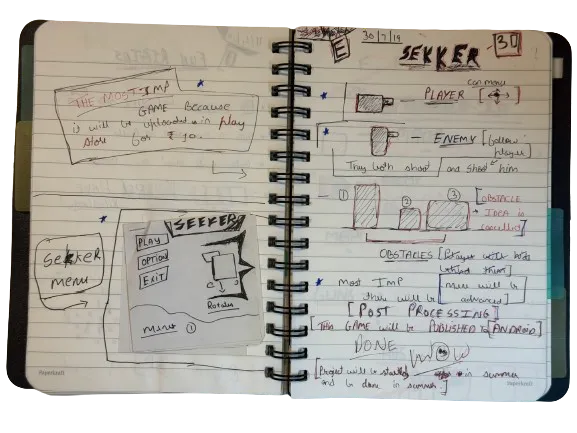 THE MOST IMP
GAME Because
it will be uploaded in play
store for ₹ 10.
Seekker
menu
SEEKER
PLAY
OPTION
EXIT
Rotates
menu ①
Paperkraft
E
30/7/19
SEKKER
30
can move
— PLAYER
— ENEMY [follow player]
They both shoot and shoot him
①
②
③
[OBSTACLE
IDEA is
cancelled]
OBSTACLES [Player will be
behind them]
most IMP
there will be
more will be
advanced
[POST PROCESSING]
[This GAME will be PUBLISHED to [ANDROID]
DONE
WOW
[Project will be started in summer
and be done in summer.]
Paperkraft